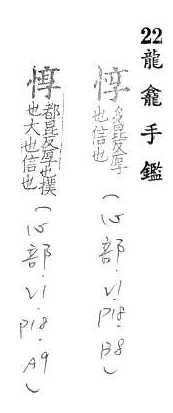 22龍龕手鑑
惇
昆反厚
也信也
(心部.V1.P18.B8)
惇
都昆反厚也撲
也大也信也
(心部.V1.P18.A9)